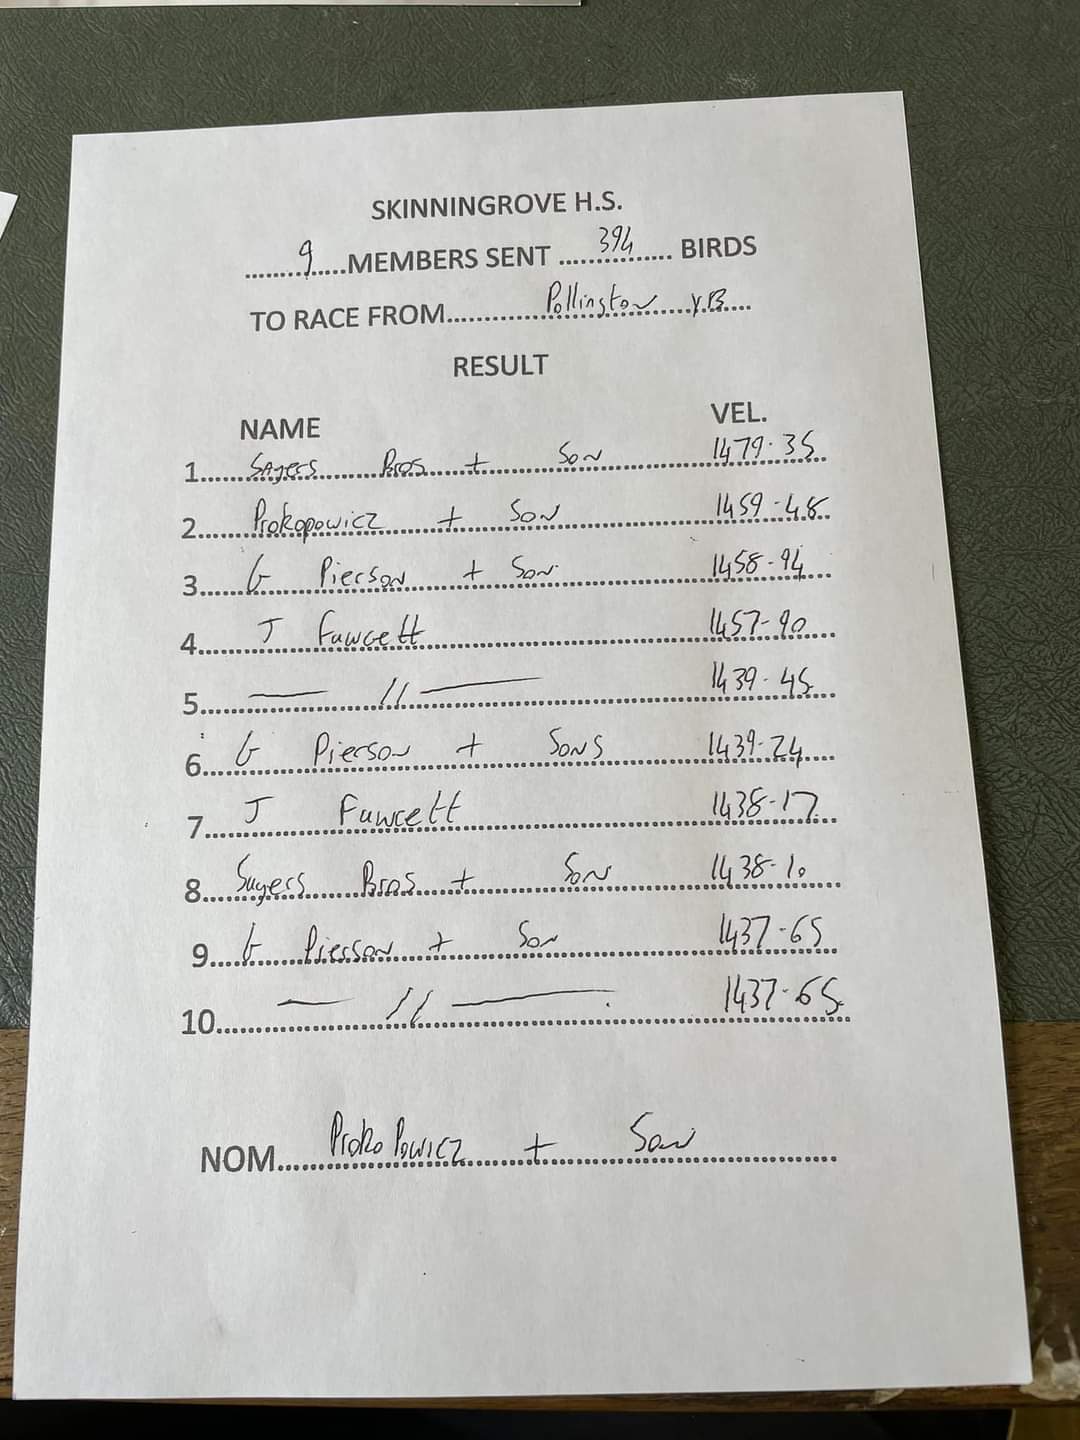 SKINNINGROVE H.S.
9 MEMBERS SENT 394 BIRDS
TO RACE FROM Pollington Y.B.
RESULT
NAME VEL.
1 Sayers Bros + Son 1479.35
2 Prokopowicz + Son 1459-48
3 G Pierson + Son 1458-94
4 J Fawcett 1457-90
5 — // — 1439-45
6 G Pierson + Sons 1439-24
7 J Fawcett 1438-17
8 Sayers Bros + Son 1438-10
9 G Pierson + Son 1437-65
10 — // — 1437-65
NOM Proko Powicz + Son